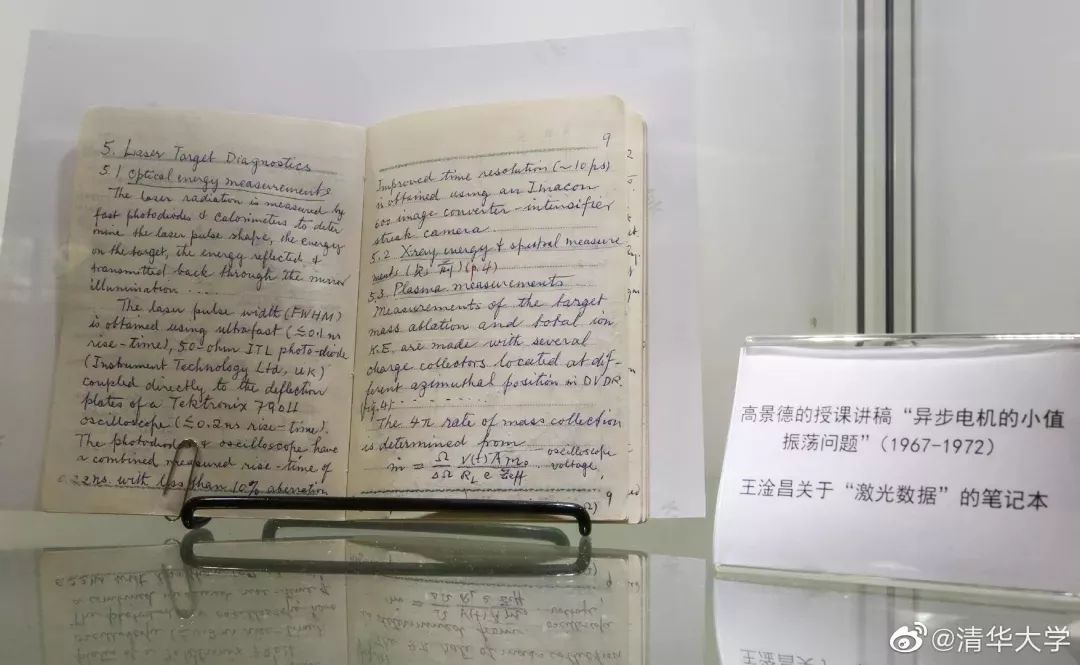 5. Laser Target Diagnostics
5.1 Optical energy measurements
The laser radiation is measured by
fast photodiodes & calorimeters to deter
mine the laser pulse shape, the energy
on the target, the energy reflected &
transmitted back through the mirror
illumination .....
The laser pulse width (FWHM)
is obtained using ultrafast (≦0.1 ns
rise-time), 50-ohm ITL photo-diode
(Instrument Technology Ltd, UK)
coupled directly to the deflection
plates of a Tektronix 7904
oscilloscope (≦0.2 ns rise-time).
The photodiode & oscilloscope have
a combined measured rise-time of
0.22 ns with less than 10% aberration
9
Improved time resolution (~10 ps)
is obtained using an Imacon
600 image converter-intensifier
streak camera.
5.2 X-ray energy & spectral measure
ments (p.4)
5.3 Plasma measurements
Measurements of the target
mass ablation and total ion
K.E. are made with several
charge collectors located at dif-
ferent azimuthal position in DVDR.
Fig. 4)
The 4π rate of mass collection
is determined from
oscilloscope
ṁ = Ω/ΔΩ V(t) A m₀/R_L e Z_eff voltage,
9
高景德的授课讲稿“异步电机的小值
振荡问题”(1967-1972)
王淦昌关于“激光数据”的笔记本
@清华大学